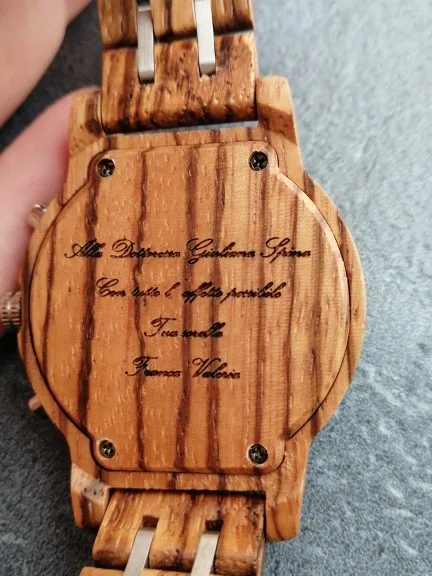 Alla Dottoressa Giuliana Spina
Con tutto l' affetto possibile
Tua sorella
Franca Valeria